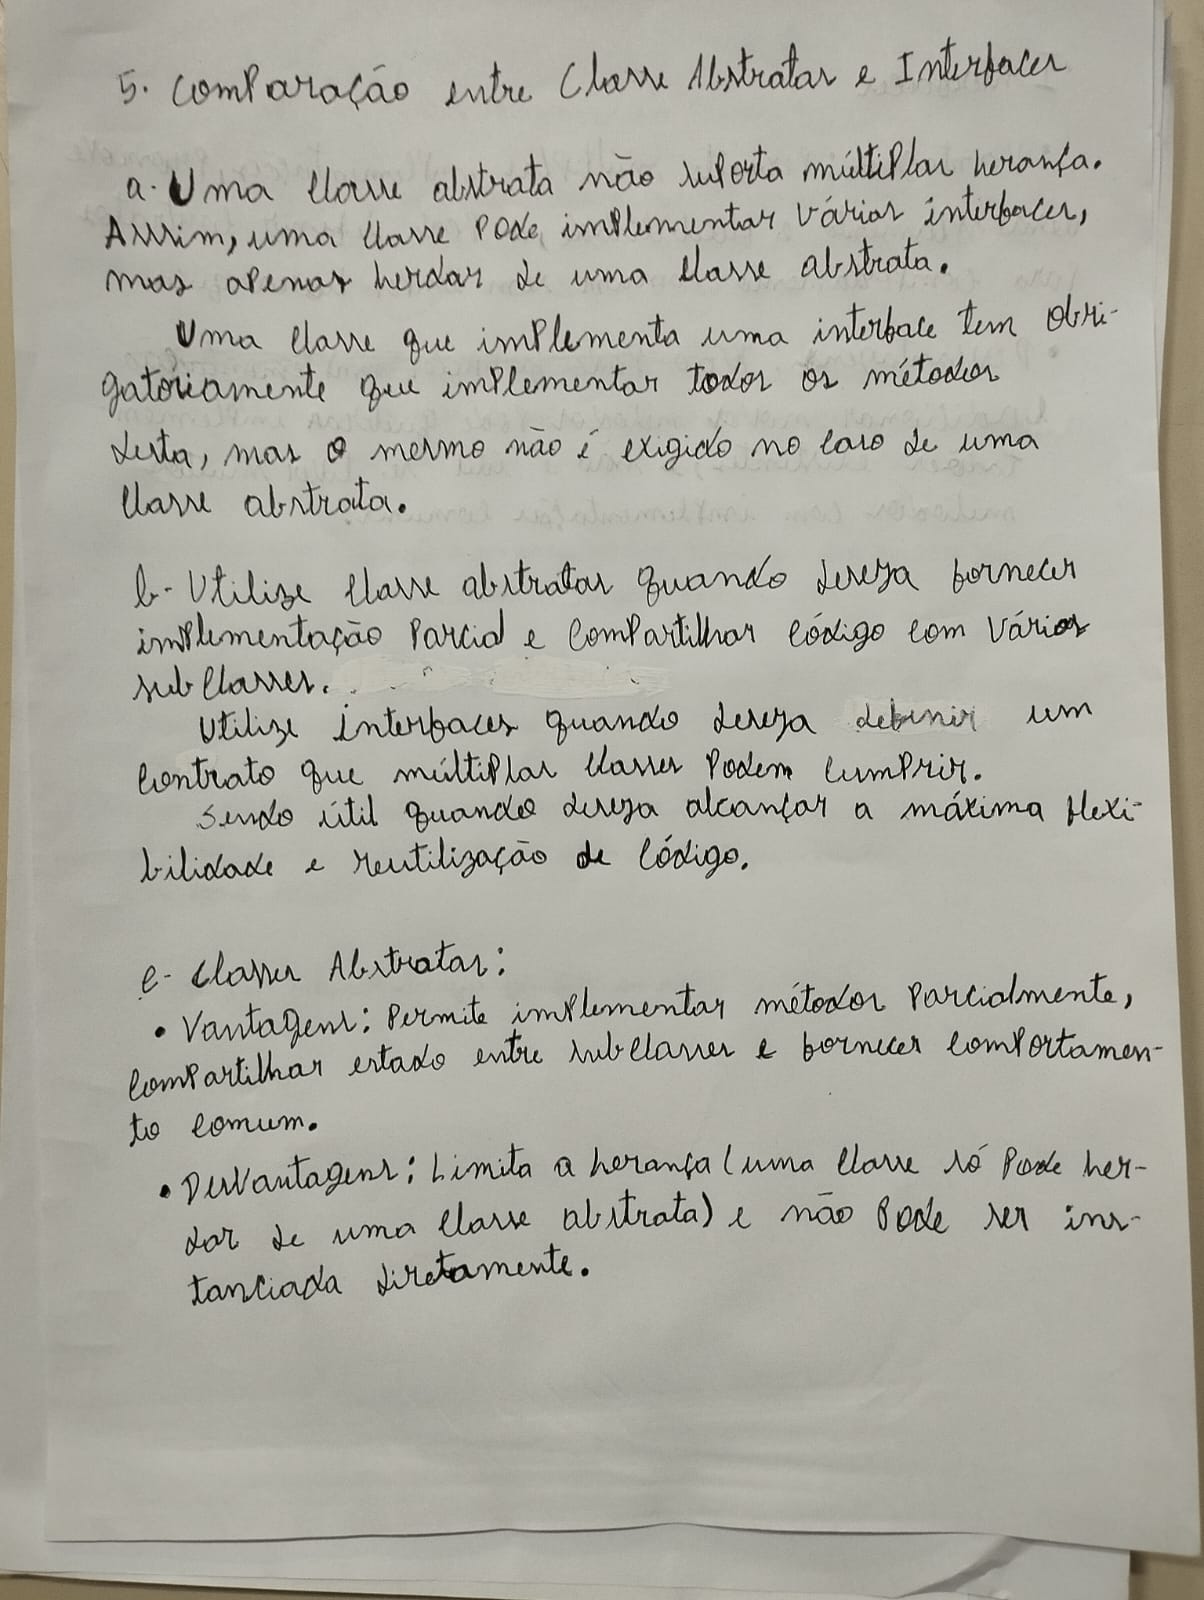 5. Comparação entre Classe Abstratas e Interfaces
a. Uma classe abstrata não suporta múltiplas herança.
Assim, uma classe pode implementar várias interfaces,
mas apenas herdar de uma classe abstrata.
Uma classe que implementa uma interface tem obri-
gatoriamente que implementar todos os métodos
desta, mas o mesmo não é exigido no caso de uma
classe abstrata.
b- Utilize classe abstratas quando deseja fornecer
implementação parcial e compartilhar código com vários
subclasses.
Utilize interfaces quando deseja definir um
contrato que múltiplas classes podem cumprir.
Sendo útil quando deseja alcançar a máxima flexi-
bilidade e reutilização de código.
c- Classes Abstratas:
• Vantagens: Permite implementar métodos parcialmente,
compartilhar estado entre subclasses e fornecer comportamen-
to comum.
• Desvantagens: Limita a herança (uma classe só pode her-
dar de uma classe abstrata) e não pode ser ins-
tanciada diretamente.